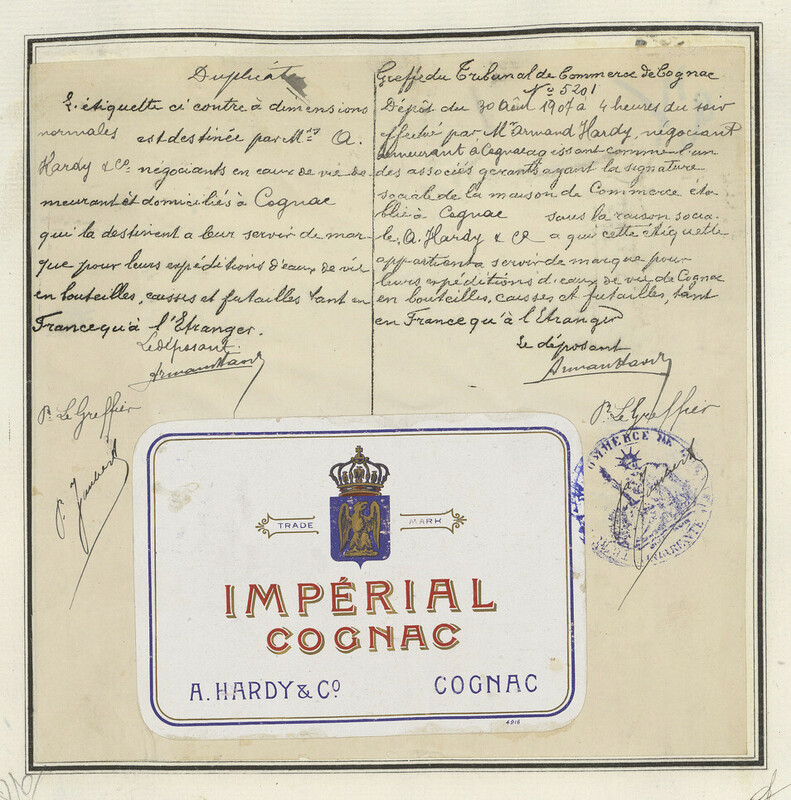 Duplicata
L'étiquette ci contre à dimensions
normales est destinée par Mrs A.
Hardy & Co. négociants en eaux de vie de-
meurant et domiciliés à Cognac
qui la destinent a leur servir de mar-
que pour leurs expéditions d'eaux de vie
en bouteilles, caisses et futailles tant en
France qu'à l'Etranger.
Le déposant
Armand Hardy
Pr. Le Greffier
P. Jaubert
Greffe du Tribunal de Commerce de Cognac
No 5201
Dépôt du 30 Août 1907 à 4 heures du soir
effectué par Mr Armand Hardy, négociant
demeurant à Cognac agissant comme l'un
des associés gérants ayant la signature
sociale de la maison de Commerce éta-
blie à Cognac sous la raison socia-
le A. Hardy & Co a qui cette étiquette
appartient a servir de marque pour
leurs expéditions d'eaux de vie de Cognac
en bouteilles, caisses et futailles, tant
en France qu'à l'Etranger
Le déposant
Armand Hardy
Pr. Le Greffier
COMMERCE DE
CHARENTE
TRADE MARK
IMPÉRIAL
COGNAC
A. HARDY & Co COGNAC
4916